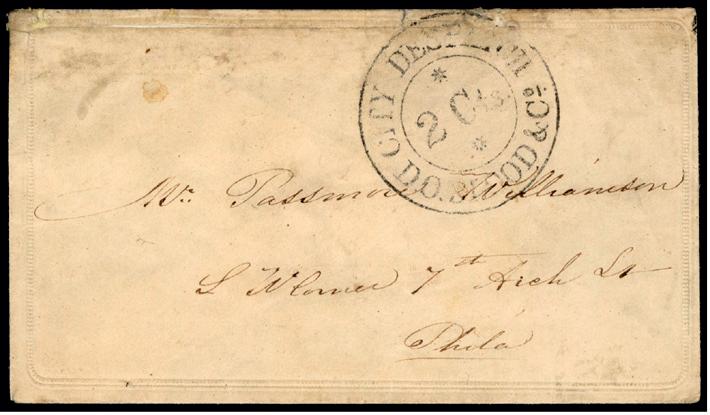 CITY DESPATCH
2 Cts
D.O. BLOOD & Co.
Mr. Passmore Williamson
S W Corner 7th Arch St
Phila